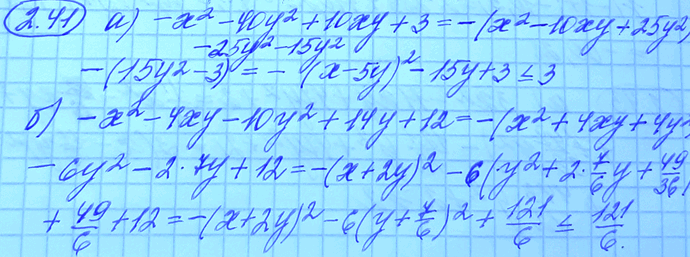 2.41 а) -x² - 40y² + 10xy + 3 = -(x² - 10xy + 25y²)
-25y² -15y²
-(15y² - 3) = -(x-5y)² - 15y + 3 ≤ 3
б) -x² - 4xy - 10y² + 14y + 12 = -(x² + 4xy + 4y²
- 6y² - 2·7y + 12 = -(x+2y)² - 6(y² + 2·7/6y + 49/36)
+ 49/6 + 12 = -(x+2y)² - 6(y + 7/6)² + 121/6 ≤ 121/6.